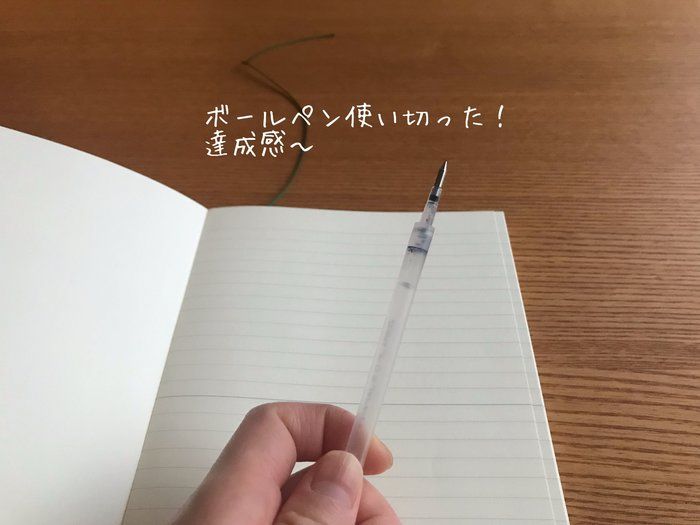 ボールペン使い切った!
達成感～